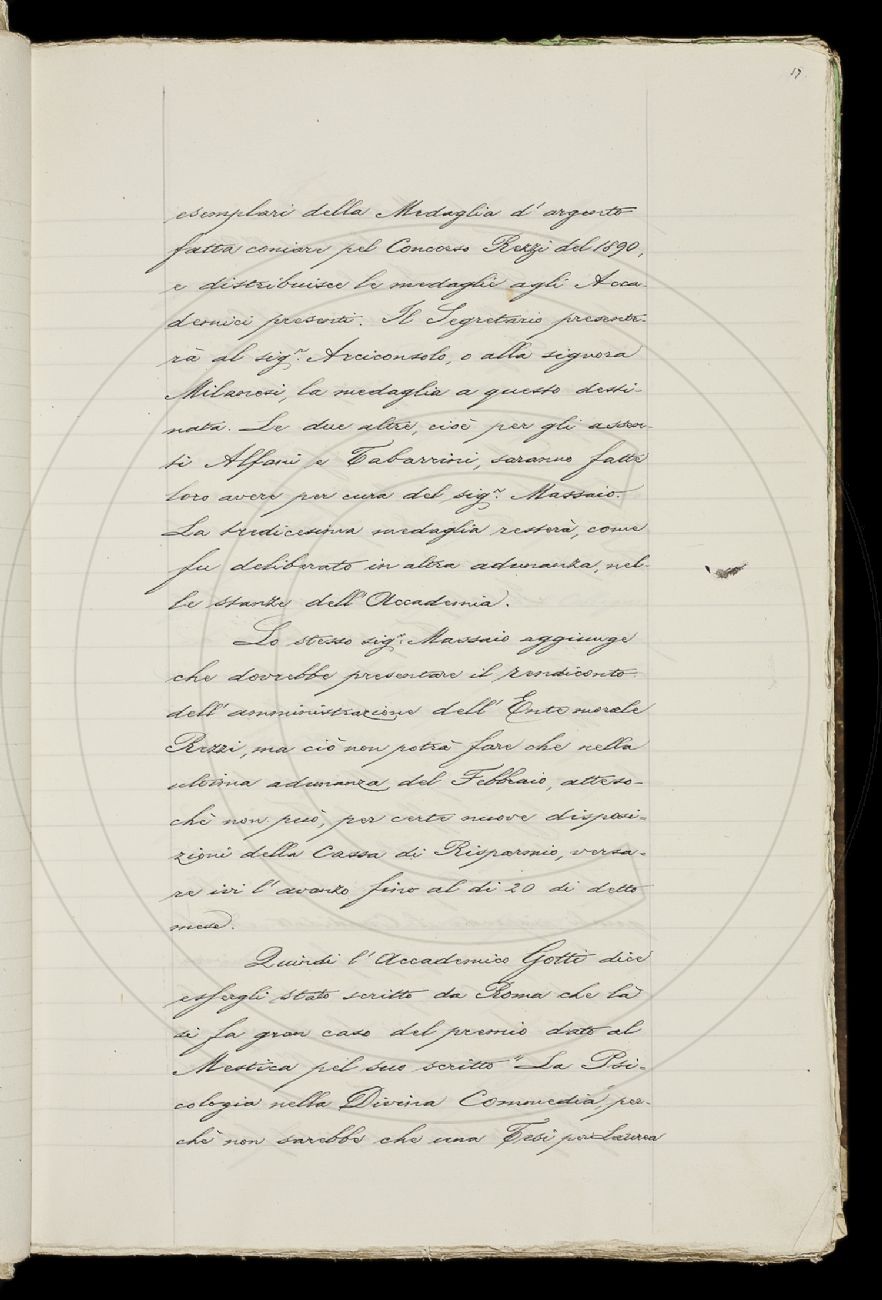 17
esemplari della Medaglia d'argento
fatta coniare pel Concorso Rezzi del 1890,
e distribuisce le medaglie agli Acca-
demici presenti. Il Segretario presente-
rà al sigr. Arciconsolo, o alla signora
Milanesi, la medaglia a questo desti-
nata. Le due altre, cioè per gli assen-
ti Alfani e Tabarrini, saranno fatte
loro avere per cura del sigr. Massaio.
La tredicesima medaglia resterà, come
fu deliberato in altra adunanza, nel-
le stanze dell'Accademia.
Lo stesso sigr. Massaio aggiunge
che dovrebbe presentare il rendiconto
dell'amministrazione dell'Ente morale
Rezzi, ma ciò non potrà fare che nella
ultima adunanza del Febbraio, atteso-
chè non può, per certe nuove disposi-
zioni della Cassa di Risparmio, versa-
re ivi l'avanzo fino al di 20 di detto
mese.
Quindi l'Accademico Gotti dice
essergli stato scritto da Roma che là
si fa gran caso del premio dato al
Mestica pel suo scritto "La Psi-
cologia nella Divina Commedia", per-
chè non sarebbe che una Tesi per Laurea